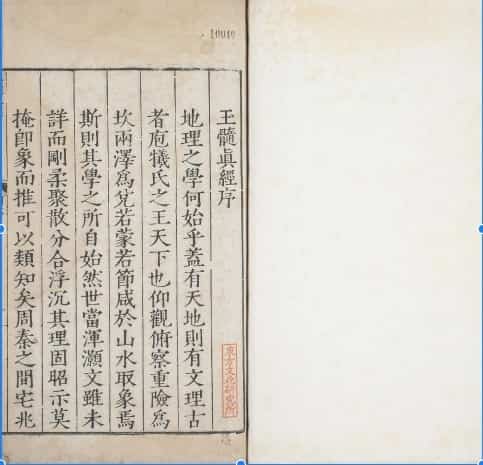 10040
玉髓眞經序
地理之學何始乎蓋有天地則有文理古
者庖犧氏之王天下也仰觀俯察重險爲
坎兩澤爲兌若蒙若節咸於山水取象焉
斯則其學之所自始然世當渾灝文雖未
詳而剛柔聚散分合浮沉其理固昭示莫
掩卽象而推可以類知矣周秦之間宅兆